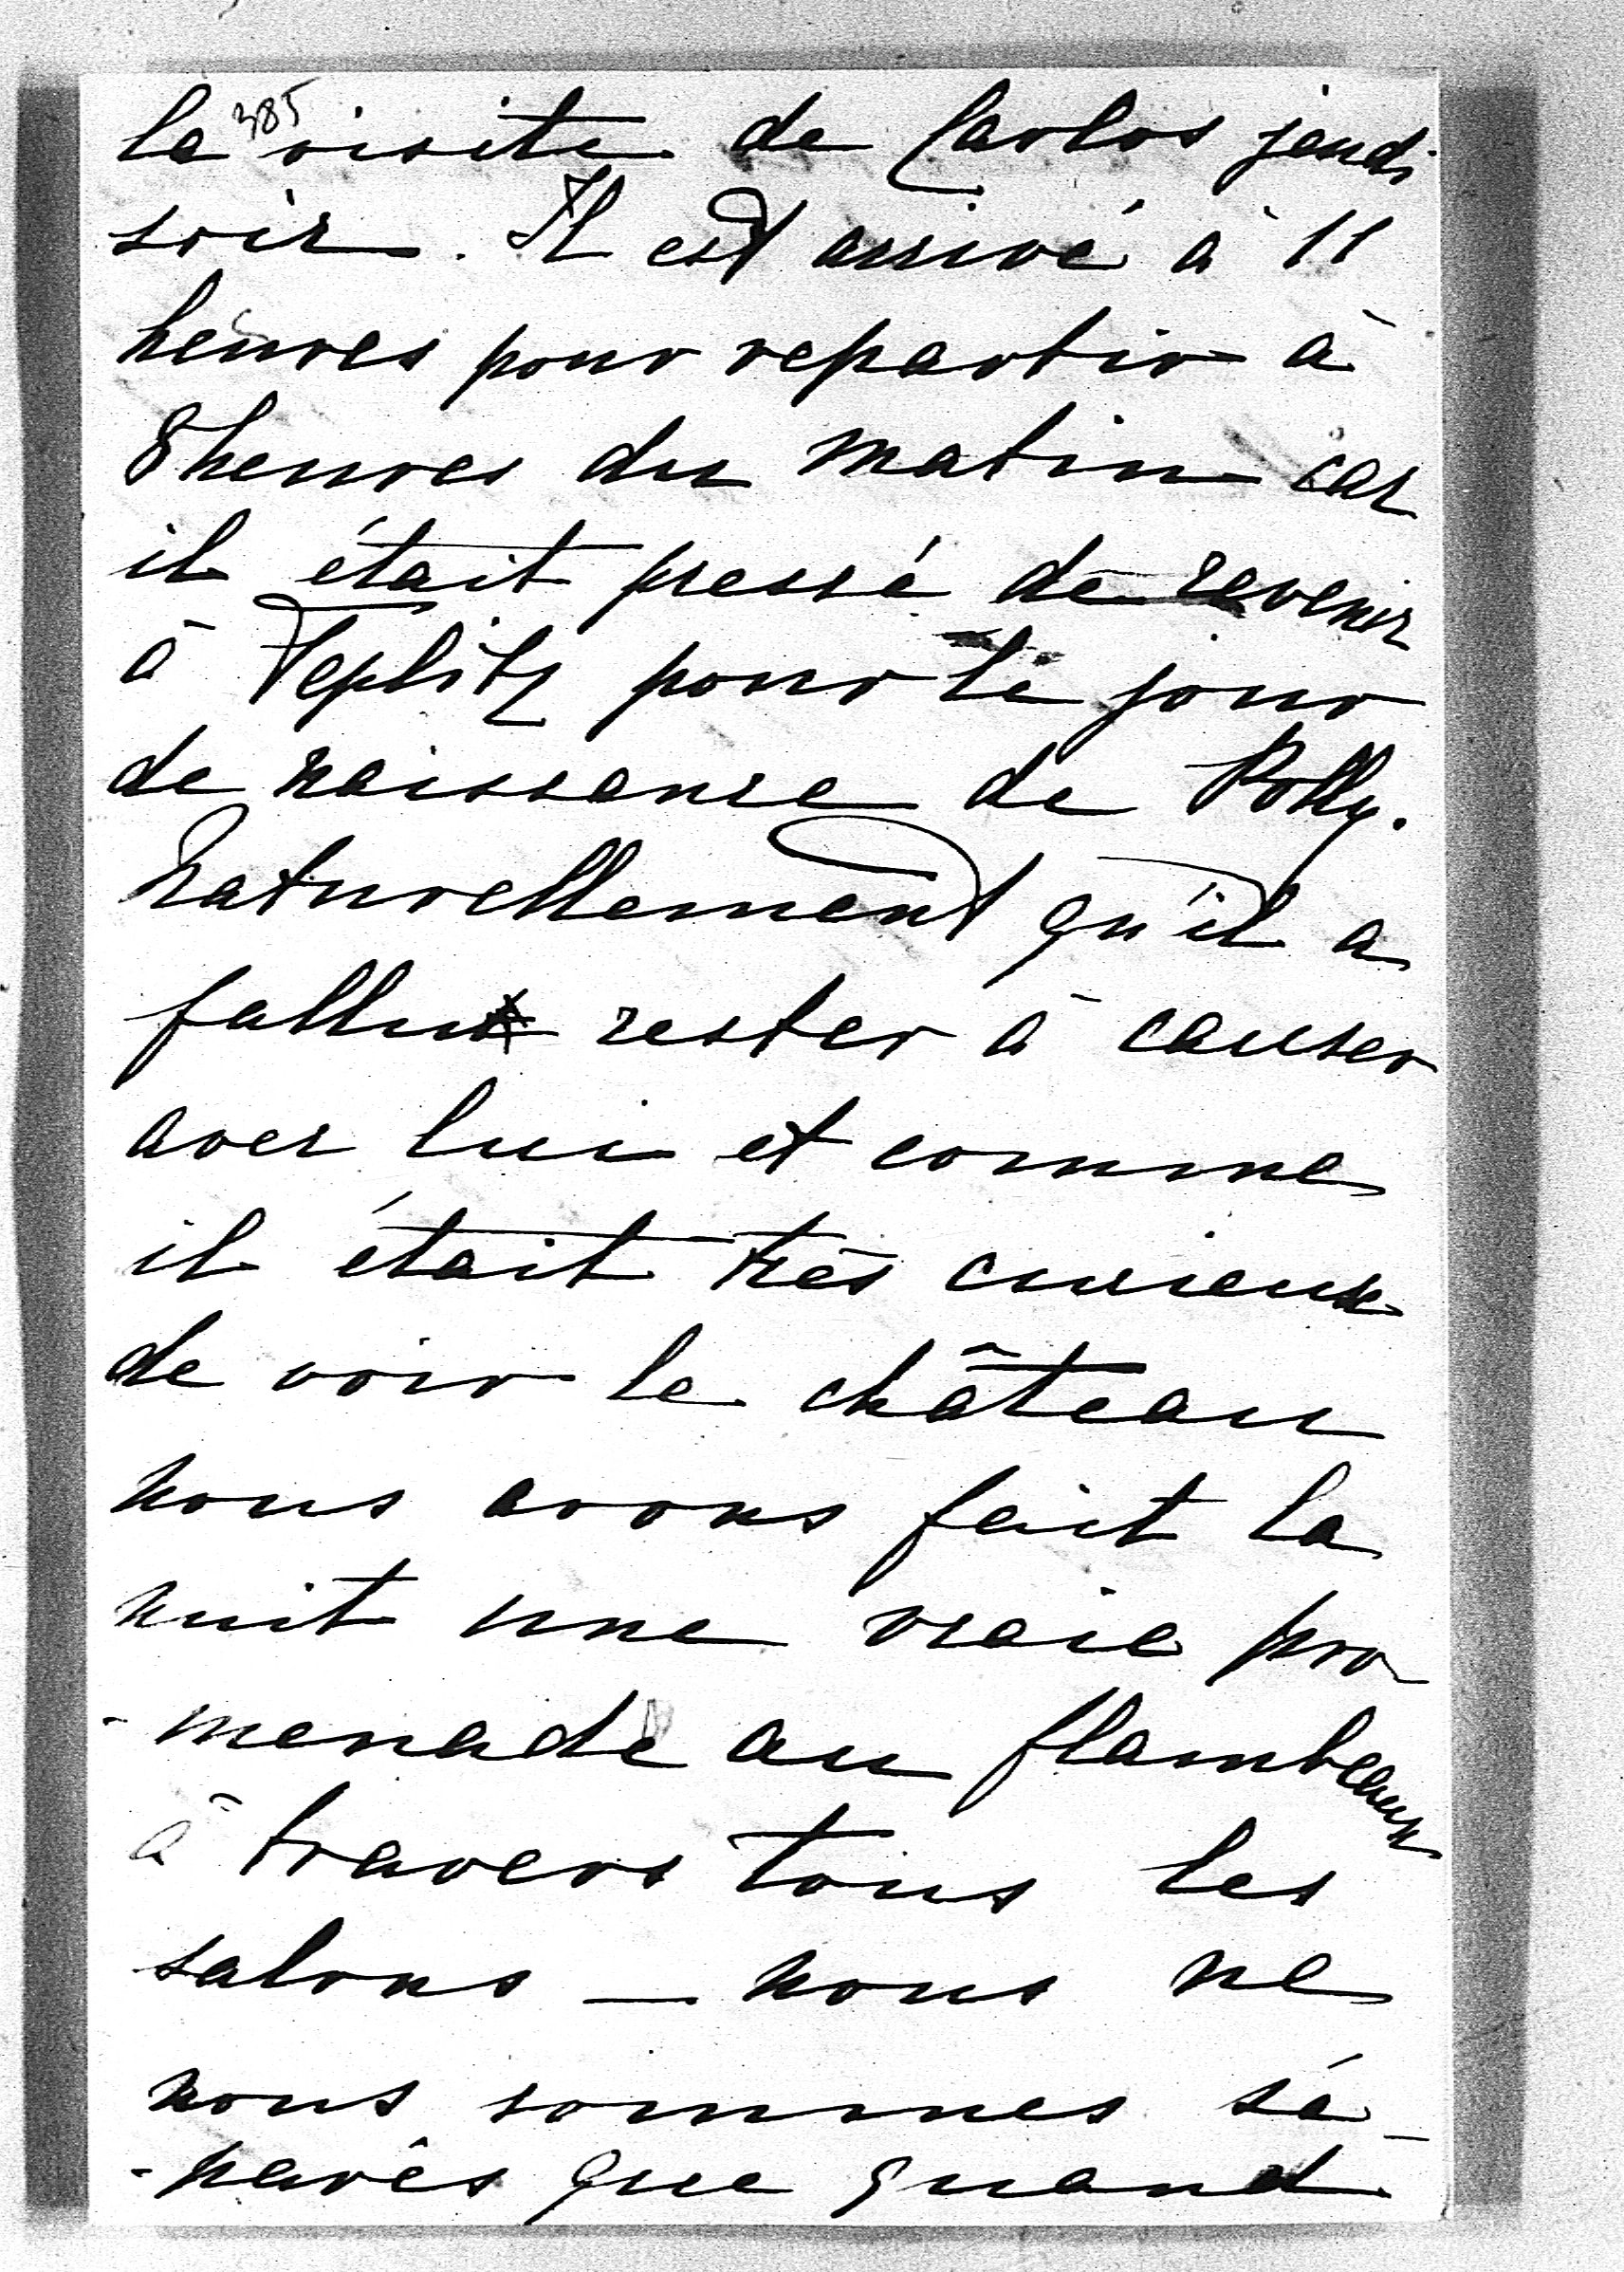 385
la visite de Carlos jeudi
soir. Il est arrivé à 11
heures pour repartir à
8 heures du matin car
il était pressé de revenir
à Teplitz pour le jour
de naissance de Polly.
Naturellement qu'il a
fallu rester à causer
avec lui et comme
il était très curieux
de voir le château
nous avons fait la
nuit une vraie pro
-menade au flambeaux
à travers tous les
salons — nous ne
nous sommes sé-
-parés que quand